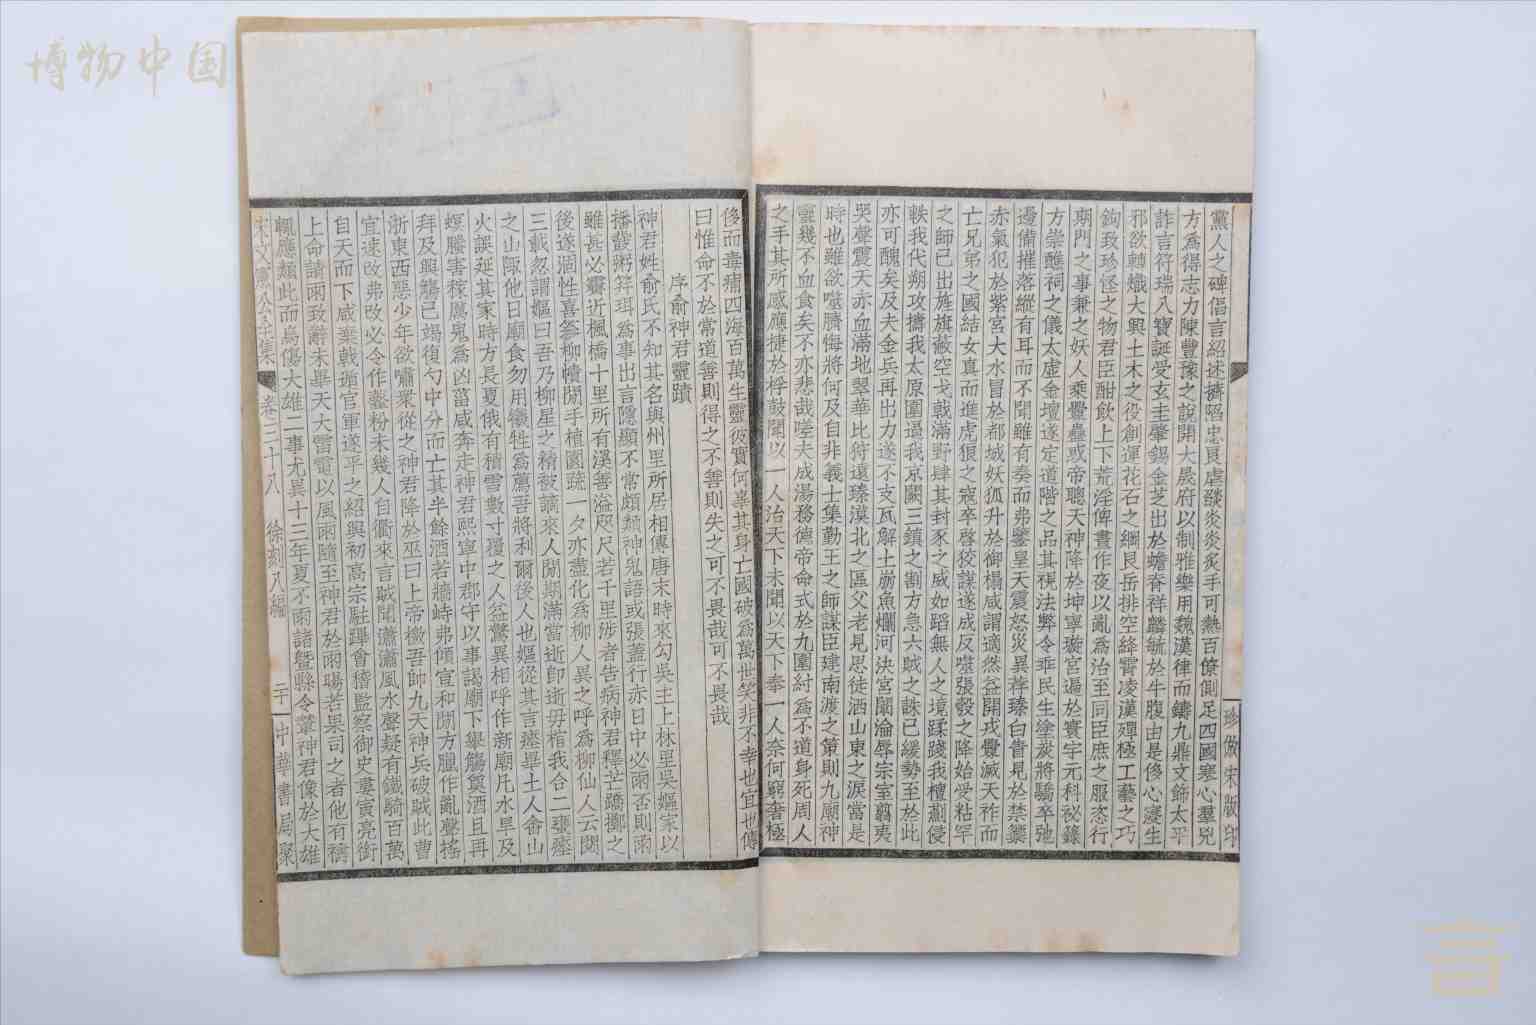 黨人之碑倡言紹述擠陷忠良虐燄炎炎炙手可熱百僚側足四國寒心羣兇
方爲得志力陳豐豫之說開大晟府以制雅樂用魏漢律而鑄九鼎文飾太平
詐言符瑞八寶誕受玄圭肇錫金芝出於蟾脊祥麟毓於牛腹由是侈心寖生
邪欲轉熾大興土木之役創運花石之綱艮岳排空絳霄凌漢殫極工藝之巧
鉤致珍怪之物君臣酣飲上下荒淫俾晝作夜以亂爲治至同臣庶之服恣行
期門之事兼之妖人乘釁蠱惑帝聰天神降於坤寧璇宮遍於寰宇元科祕籙
方崇醮祠之儀太虛金壇遂定道階之品其視法弊令乖民生塗炭將驕卒弛
邊備摧落縱有耳而不聞雖有奏而弗鑒皇天震怒災異荐臻白眚見於禁籞
赤氣犯於紫宮大水冒於都城妖狐升於御榻咸謂適然益開戎釁滅天祚而
亡兄弟之國結女真而進虎狼之寇卒啓狡謀遂成反噬張瑴之降始受粘罕
之師已出旌旗蔽空戈戟滿野肆其封豕之威如蹈無人之境蹂踐我檀薊侵
軼我代朔攻擣我太原圍逼我京闕三鎮之割方急六賊之誅已緩勢至於此
亦可醜矣及夫金兵再出力遂不支瓦解土崩魚爛河決宮闈淪辱宗室翦夷
哭聲震天赤血滿地翠華比狩遠臻漠北之區父老見思徒洒山東之淚當是
時也雖欲噬臍悔將何及自非義士集勤王之師謀臣建南渡之策則九廟神
靈幾不血食矣不亦悲哉嗟夫成湯務德帝命式於九圍紂爲不道身死周人
之手其所感應捷於桴鼓聞以一人治天下未聞以天下奉一人奈何窮奢極
珍倣宋版印
侈而毒痡四海百萬生靈彼實何辜其身亡國破爲萬世笑非不幸也宜也傳
曰惟命不於常道善則得之不善則失之可不畏哉可不畏哉
序俞神君靈蹟
神君姓俞氏不知其名與州里所居相傳唐末時來勾吳主上林里吳嫗家以
播鼗粥笄珥爲事出言隱顯不常頗類神鬼語或張蓋行赤日中必雨否則雨
雖甚必霽近楓橋十里所有溪善溢咫尺若千里涉者告病神君釋芒蹻擲之
後遂涸性喜簪柳幘閒手植園蔬一夕亦盡化爲柳人異之呼爲柳仙人云閱
三載忽謂嫗曰吾乃柳星之精被謫來人閒期滿當逝卽逝毋棺我合二甕瘞
之山陬他日廟食勿用犧牲爲薦吾將利爾後人也嫗從其言瘞畢土人畬山
火誤延其家時方長夏俄有積雪數寸覆之人益驚異相呼作新廟凡水旱及
螟螣害稼厲鬼爲凶菑咸奔走神君熙寧中郡守以事謁廟下舉觴奠酒且再
拜及興觴已竭復勺中分而亡其半餘酒若檣峙弗傾宣和閒方臘作亂聲搖
浙東西惡少年欲嘯衆從之神君降於巫曰上帝檄吾帥九天神兵破賊此曹
宜速改弗改必令作虀粉未幾人自衢來言賊聞瀟瀟風水聲疑有鐵騎百萬
自天而下咸棄戟遁官軍遂平之紹興初高宗駐蹕會稽監察御史婁寅亮銜
上命請雨致辭未畢天大雷電以風雨隨至神君於雨暘若果司之者他有禱
輒應類此而烏傷大雄二事尤異十三年夏不雨諸暨縣令輦神君像於大雄
宋文憲公全集 卷三十八 徐刻八編 二十 中華書局聚
博物中国